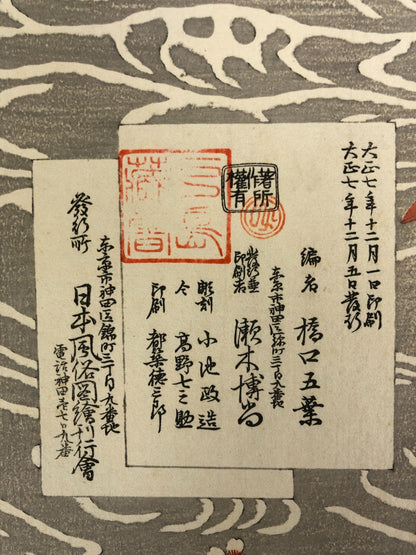 大正七年十二月一日印刷
大正七年十二月五日發行
編者 橋口五葉
東京市神田区錦町三丁目九番地
發行兼
印刷者 瀬木博尚
彫刻 小池政造
仝 高野七之助
印刷 都築徳三郎
著作
權所有
弓島
藏書
東京市神田区錦町三丁目九番地
發行所 日本風俗圖繪刊行會
電話神田